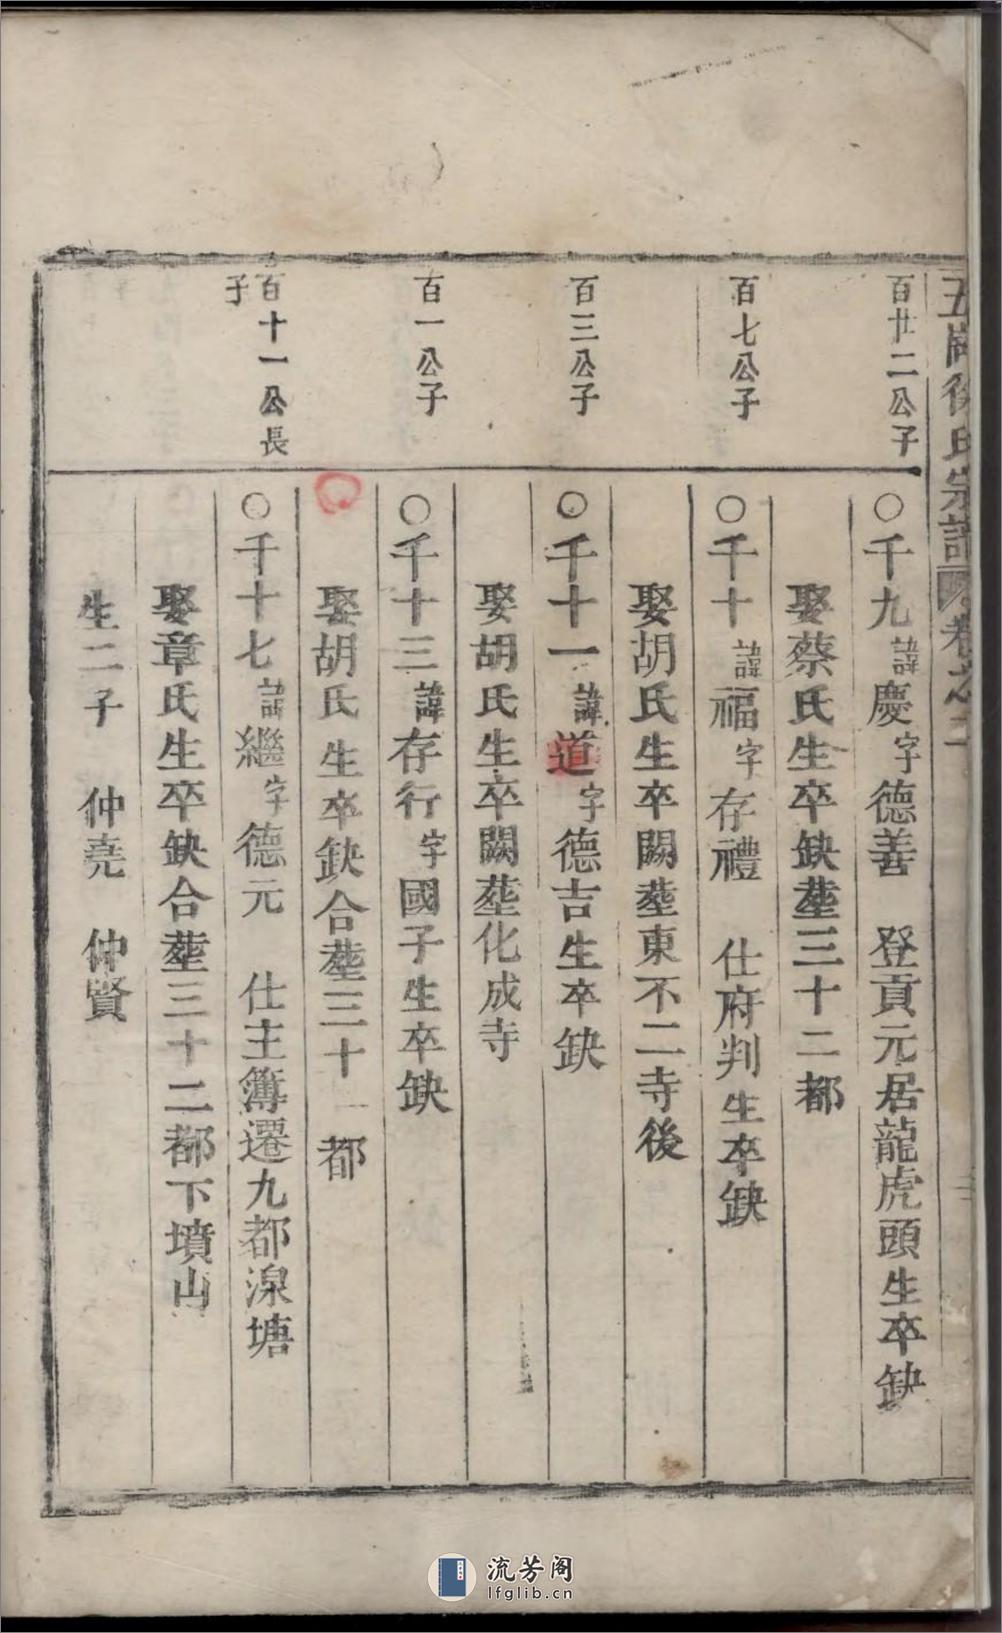 氏宗譜 卷之二
百廿二公子
○千九諱慶字德善 登貢元居龍虎頭生卒缺
娶蔡氏生卒缺塟三十二都
百七公子
○千十諱福字存禮 仕府判生卒缺
娶胡氏生卒闕塟東不二寺後
百三公子
○千十一諱道字德吉生卒缺
娶胡氏生卒闕塟化成寺
百一公子
○千十三諱存行字國子生卒缺
娶胡氏生卒缺合塟三十 都
百十一公長子
○千十七諱繼字德元 仕主簿遷九都湶塘
娶章氏生卒缺合塟三十二都下墳山
生二子 仲堯 仲賢
流芳阁
lfglib.cn